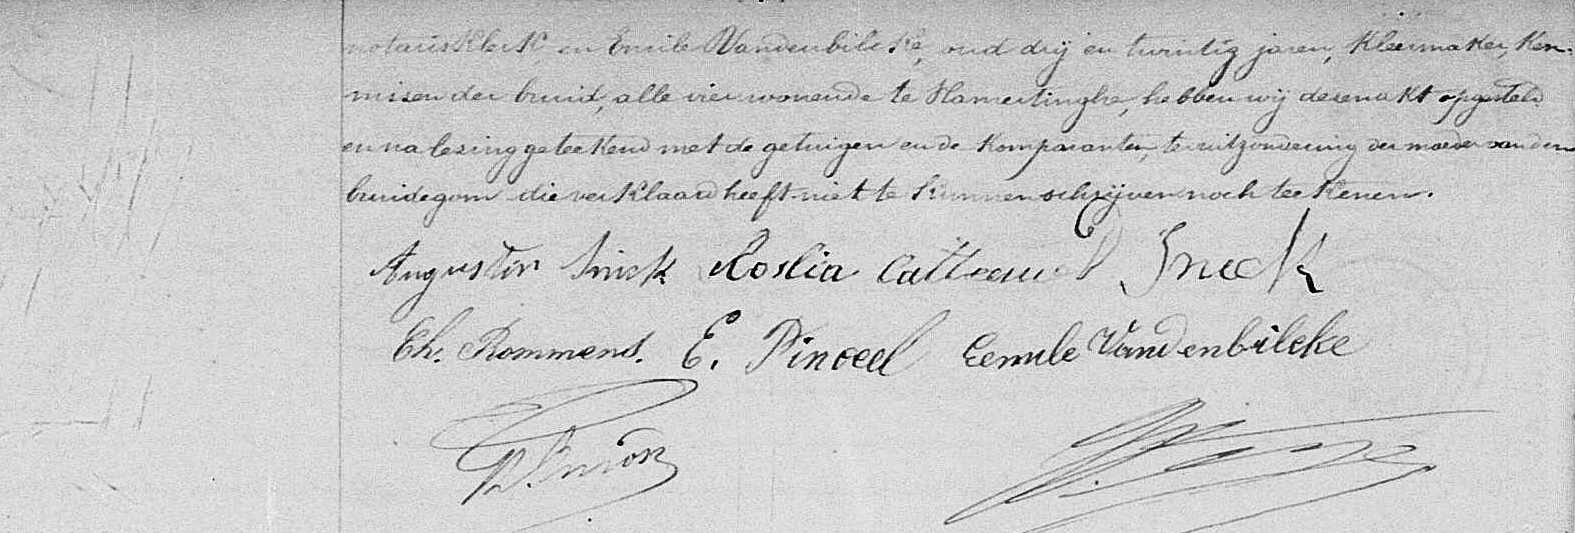 notarisklerk en Emile Vandenbilcke, oud drij en twintig jaren, Kleermaker, ken-
nissen der bruid, alle vier wonende te Vlamertinghe, hebben wij deze akt opgesteld
en na lezing geteekend met de getuigen en de komparanten, ter uitzondering der moeder van den
bruidegom die verklaard heeft niet te kunnen schrijven noch teekenen.
Augustin Snick Roslia Catteeuw Sneck
Ch. Rommens. E. Pinceel Eemile Vandenbilcke